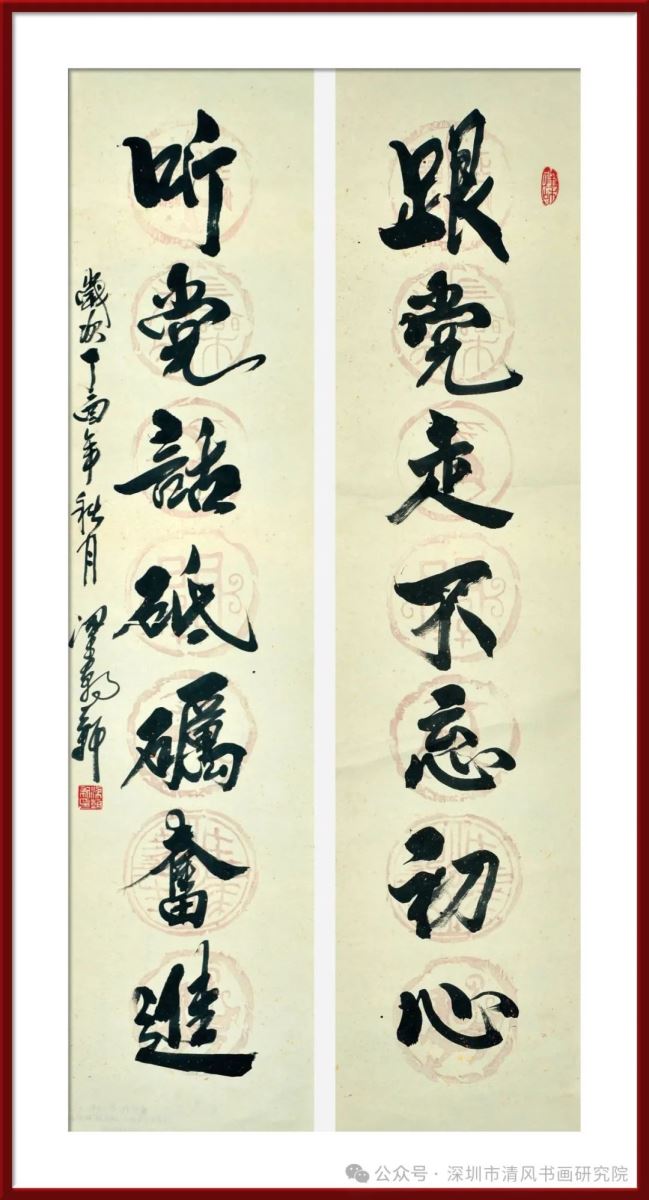 跟党走不忘初心
听党話砥礪奮進
歲次丁酉年秋月
公众号·深圳市清风书画研究院